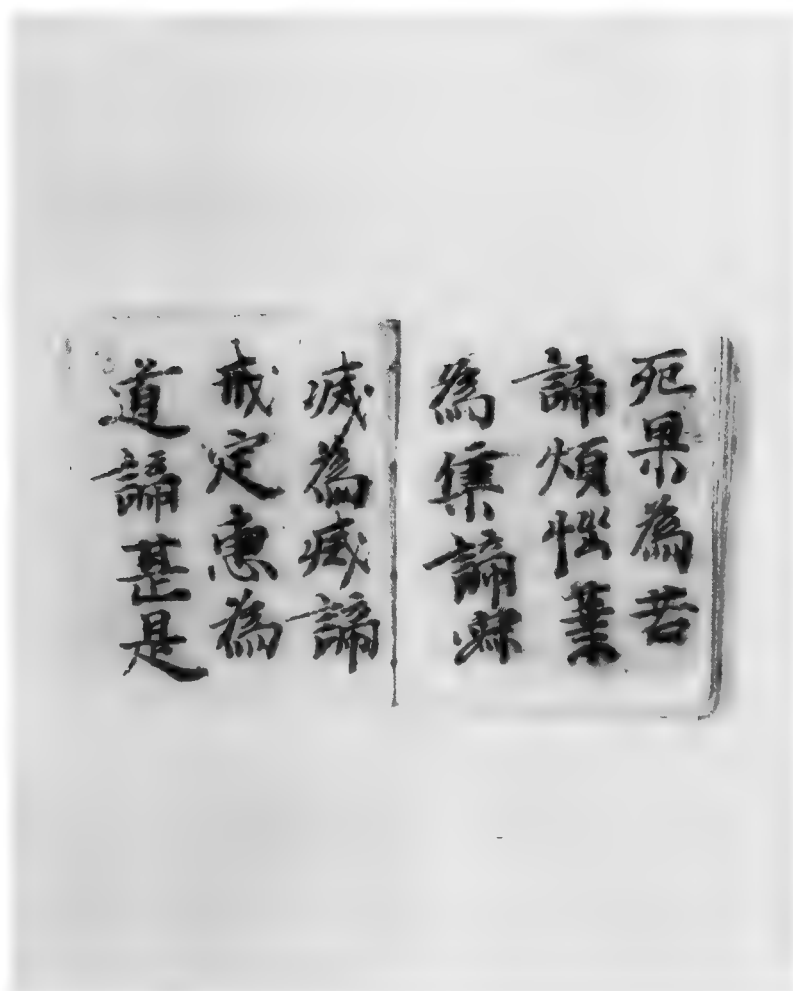 死果為苦
諦煩惱業
為集諦
滅為滅諦
戒定惠為
道諦甚是